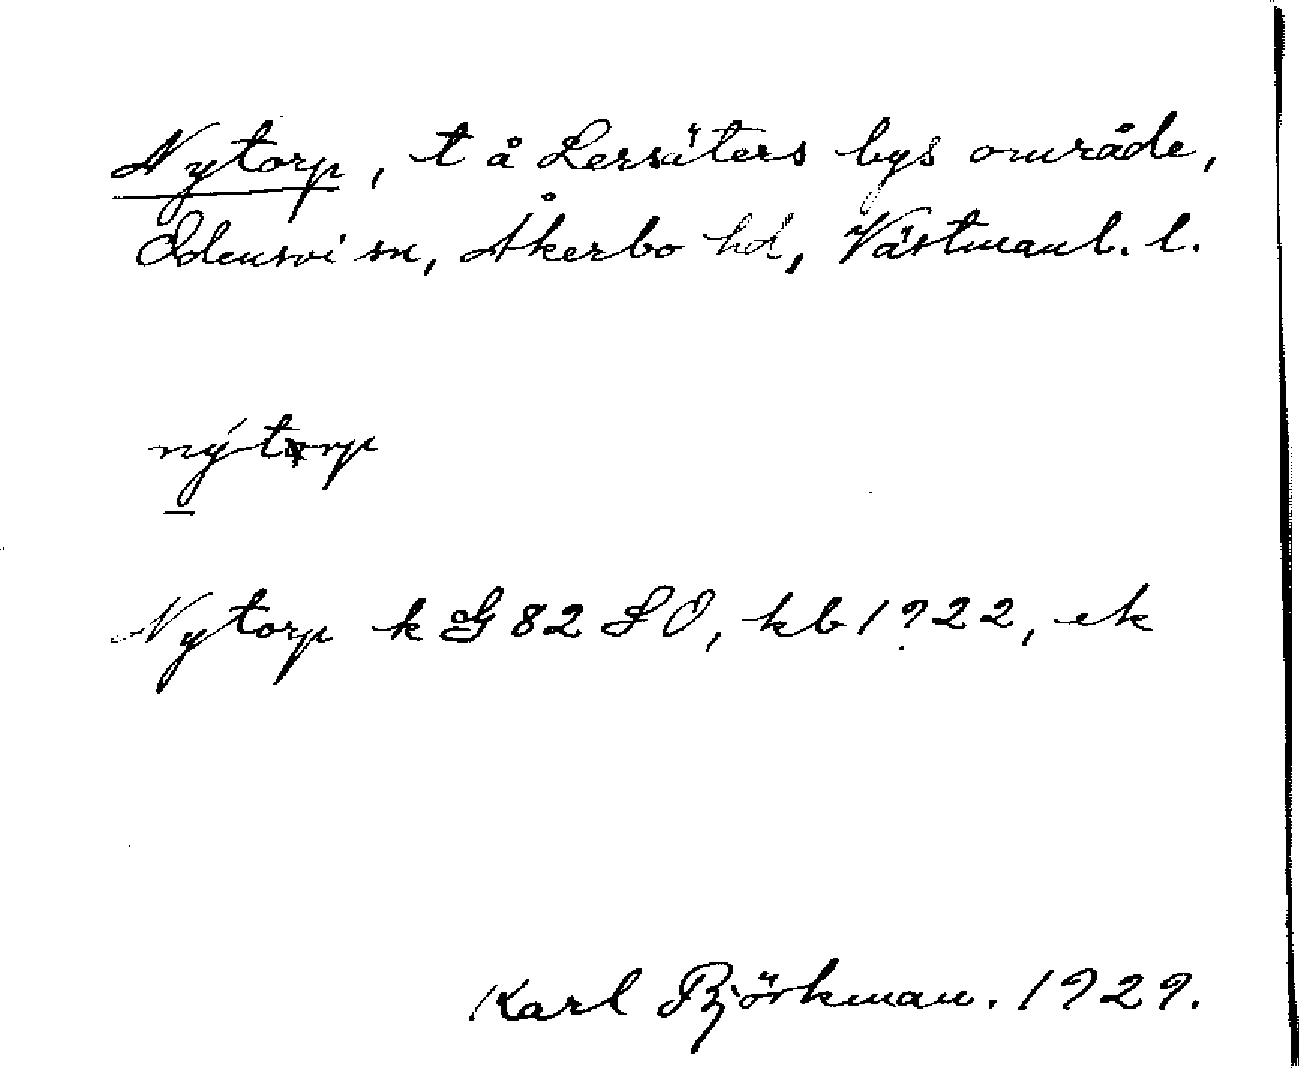 Nytorp, t å Lersäters bys område,
Odensvi sn, Åkerbo hd, Västmanl. l.
nýtorp
Nytorp k G 82 SO, kb 1922, ek
Karl Björkman. 1929.